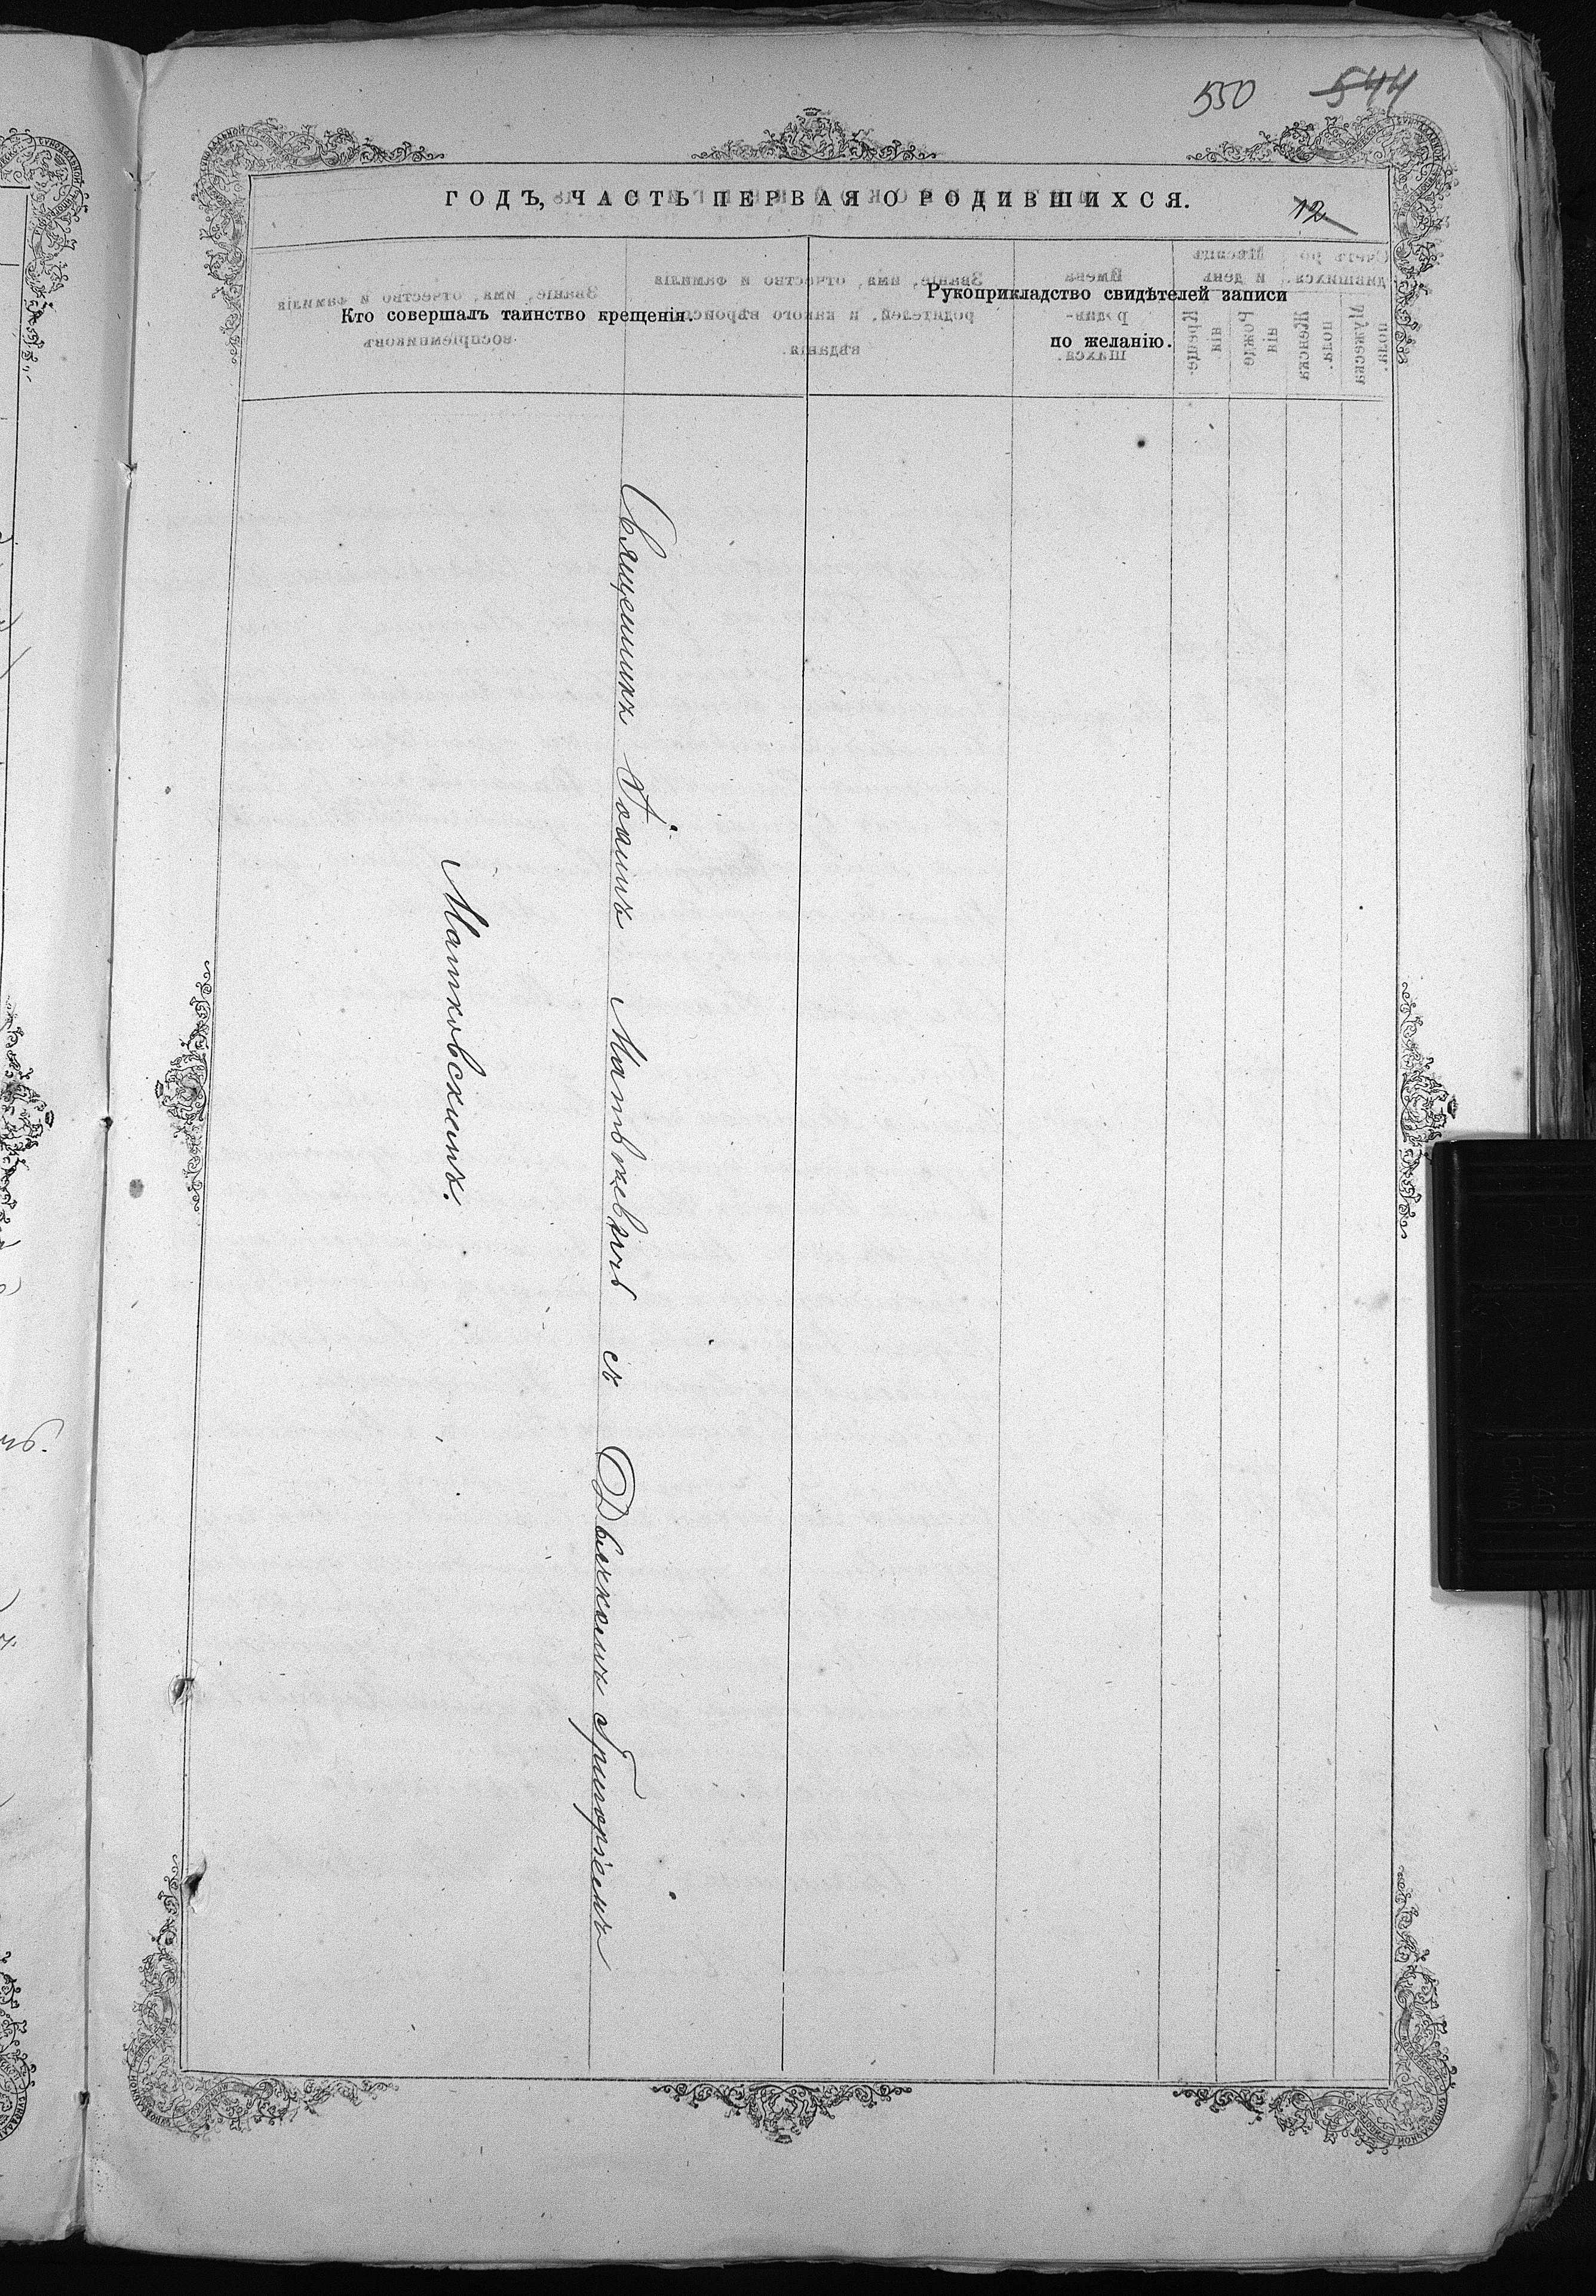 550 544
ГОДЪ, ЧАСТЬ ПЕРВАЯ О РОДИВШИХСЯ.
12
Кто совершалъ таинство крещенія.
Рукоприкладство свидѣтелей записи
по желанію.
Священникъ Іоаннъ Матѳіевичъ съ Дьячкомъ Григоріемъ
Матковскимъ.